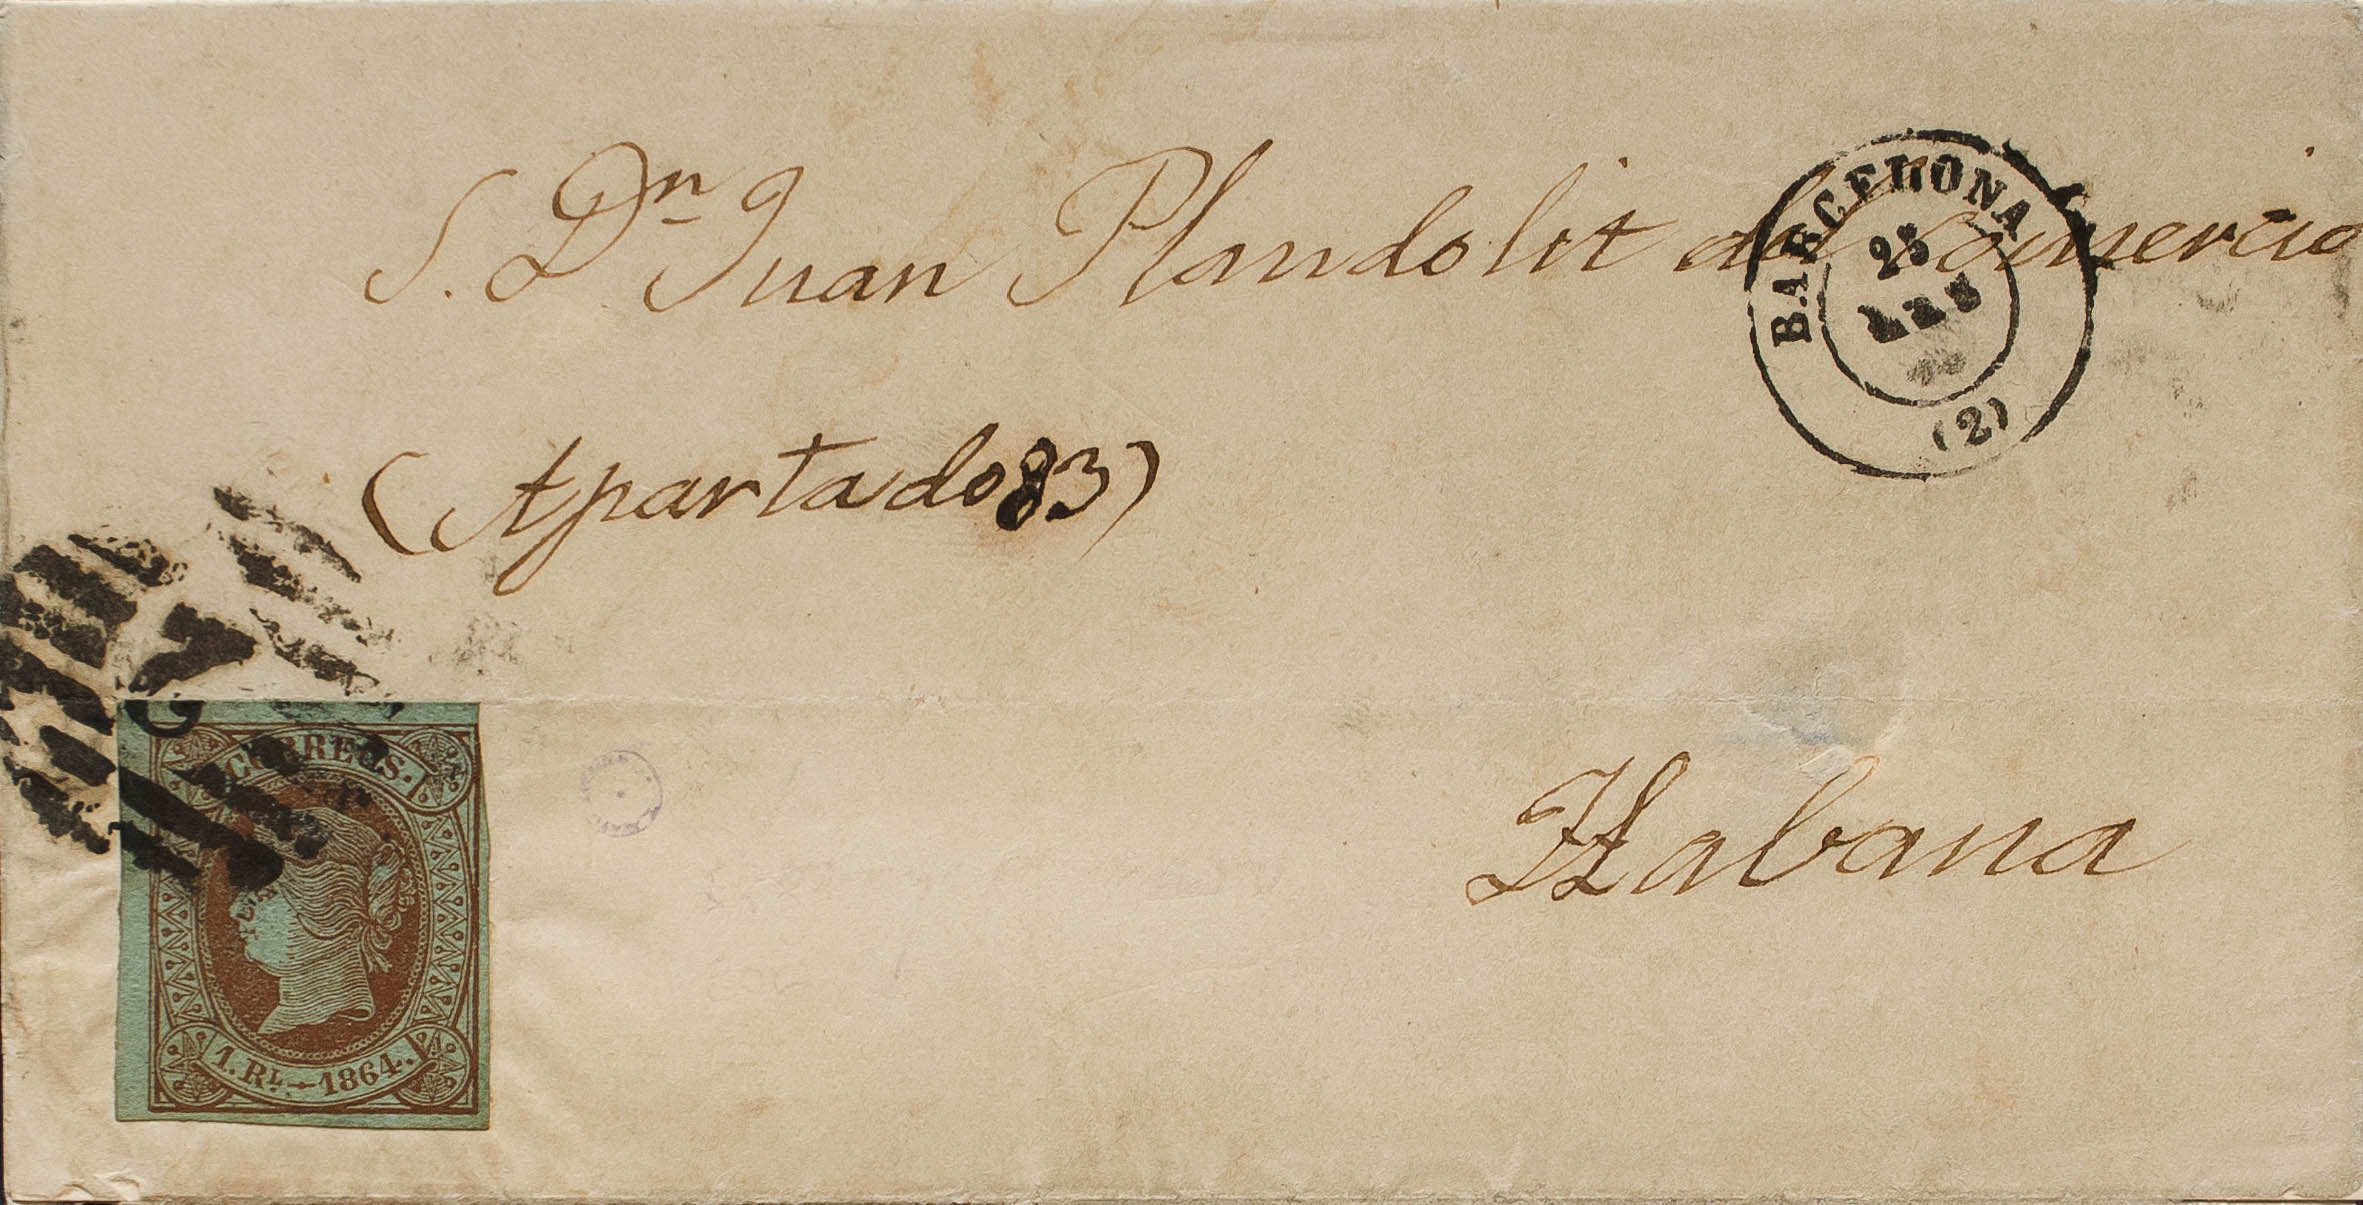 S. Dn Juan Plandolit del Comercio
(Apartado 83)
Habana
BARCELONA
25
(2)
CORREOS.
1. RL. 1864.